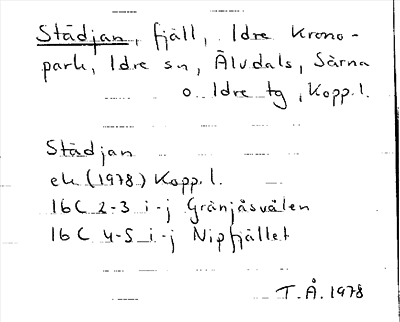 Städjan, fjäll, Idre Krono-
park, Idre sn, Älvdals, Särna
o. Idre tg, Kopp. l.
Städjan
ek (1978) Kopp. l.
16C 2-3 i-j Gränjåsvålen
16C 4-5 i-j Nipfjället
T.Å. 1978